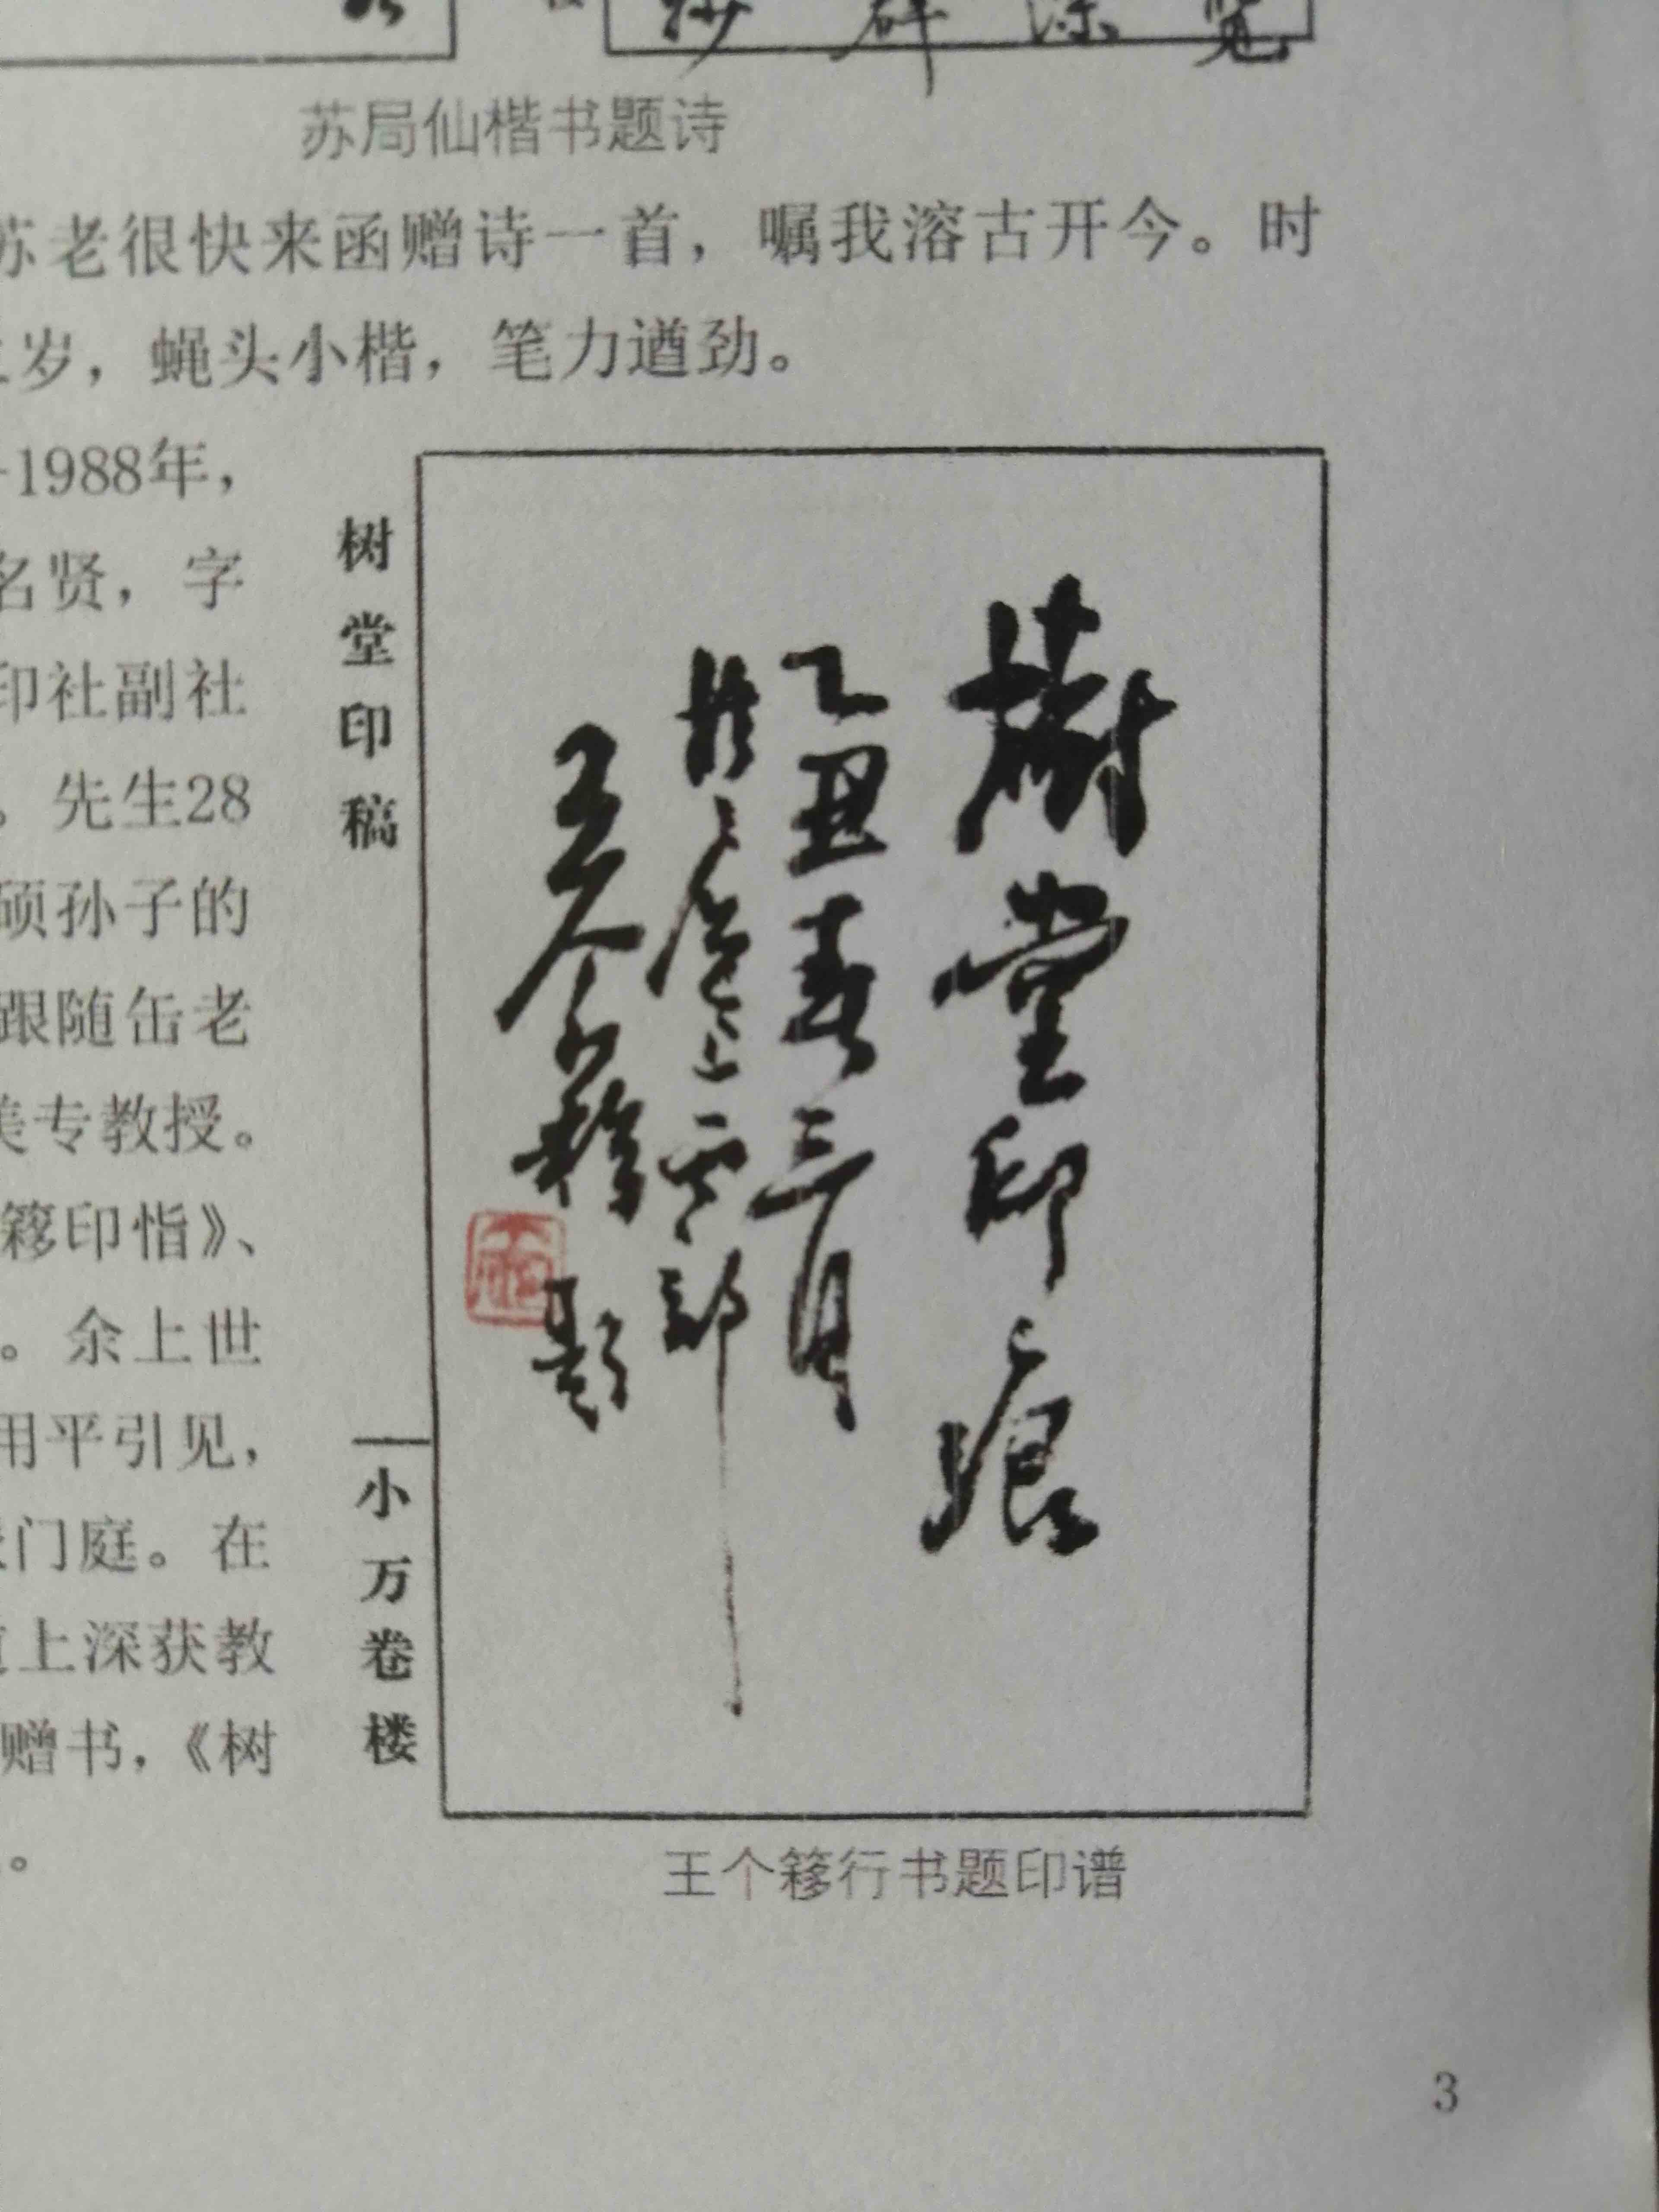 苏局仙楷书题诗
苏老很快来函赠诗一首，嘱我溶古开今。时
岁，蝇头小楷，笔力遒劲。
-1988年，
名贤，字
印社副社
。先生28
硕孙子的
跟随缶老
美专教授。
簃印恉》、
。余上世
用平引见，
门庭。在
上深获教
赠书，《树
。
树堂印稿
小万卷楼
樹堂印痕
乙丑春三月
于沪上西郊
王个簃题
王个簃行书题印谱
3